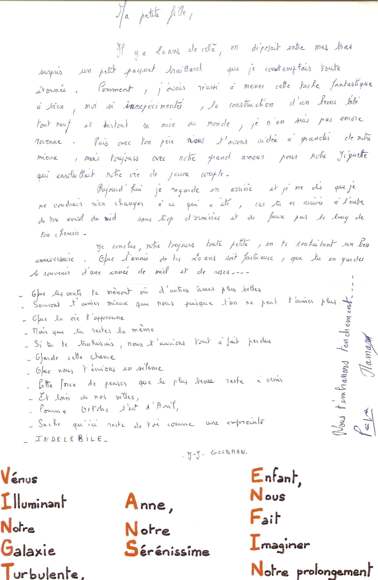 Ma petite fille,
Il y a 20 ans de cela, on déposait entre mes bras
un petit paquet braillard que je contemplais toute
étonnée. Comment, j'avais réussi à mener cette tache fantastique
à bien, moi si inexpérimentée, la construction d'un beau bébé
tout neuf et surtout sa mise au monde, je n'en suis pas encore
revenue. Puis avec ton père nous t'avons aidé à grandir de notre
mieux, mais toujours avec notre grand amour pour notre
qui ensoleillait notre vie de jeune couple.
Aujourd'hui je regarde en arrière et je me dis que je
ne voudrais rien changer à ce qui a été, car tu es arrivée à l'aube
de ton avenir sans trop d'armoires et de faux pas le long de
ton chemin.
Je conclus, notre toujours toute petite, en te souhaitant un bon
anniversaire. Que l'année de tes 20 ans soit fastueuse, que tu en gardes
le souvenir d'une année de miel et de roses ----
- Que les vents te mènent où d'autres âmes plus belles
- Sauront t'aimer mieux que nous puisque l'on ne peut t'aimer plus
- Que la vie t'apprenne
- Mais que tu restes la même
- Si tu te trahissais, nous t'aurions tout à fait perdue
- Garde cette chance
- Que nous t'envions en silence
- Cette force de penser que le plus beau reste à venir
- Et loin de nos villes,
- Comme octobre l'est d'Avril,
- Sache qu'ici reste de toi comme une empreinte
- INDELEBILE.
J.J. GOLDMAN.
Nous t'embrassons tendrement
Papa Maman
Vénus
Illuminant
Notre
Galaxie
Turbulente,
Anne,
Notre
Sérénissime
Enfant,
Nous
Fait
Imaginer
Notre prolongement